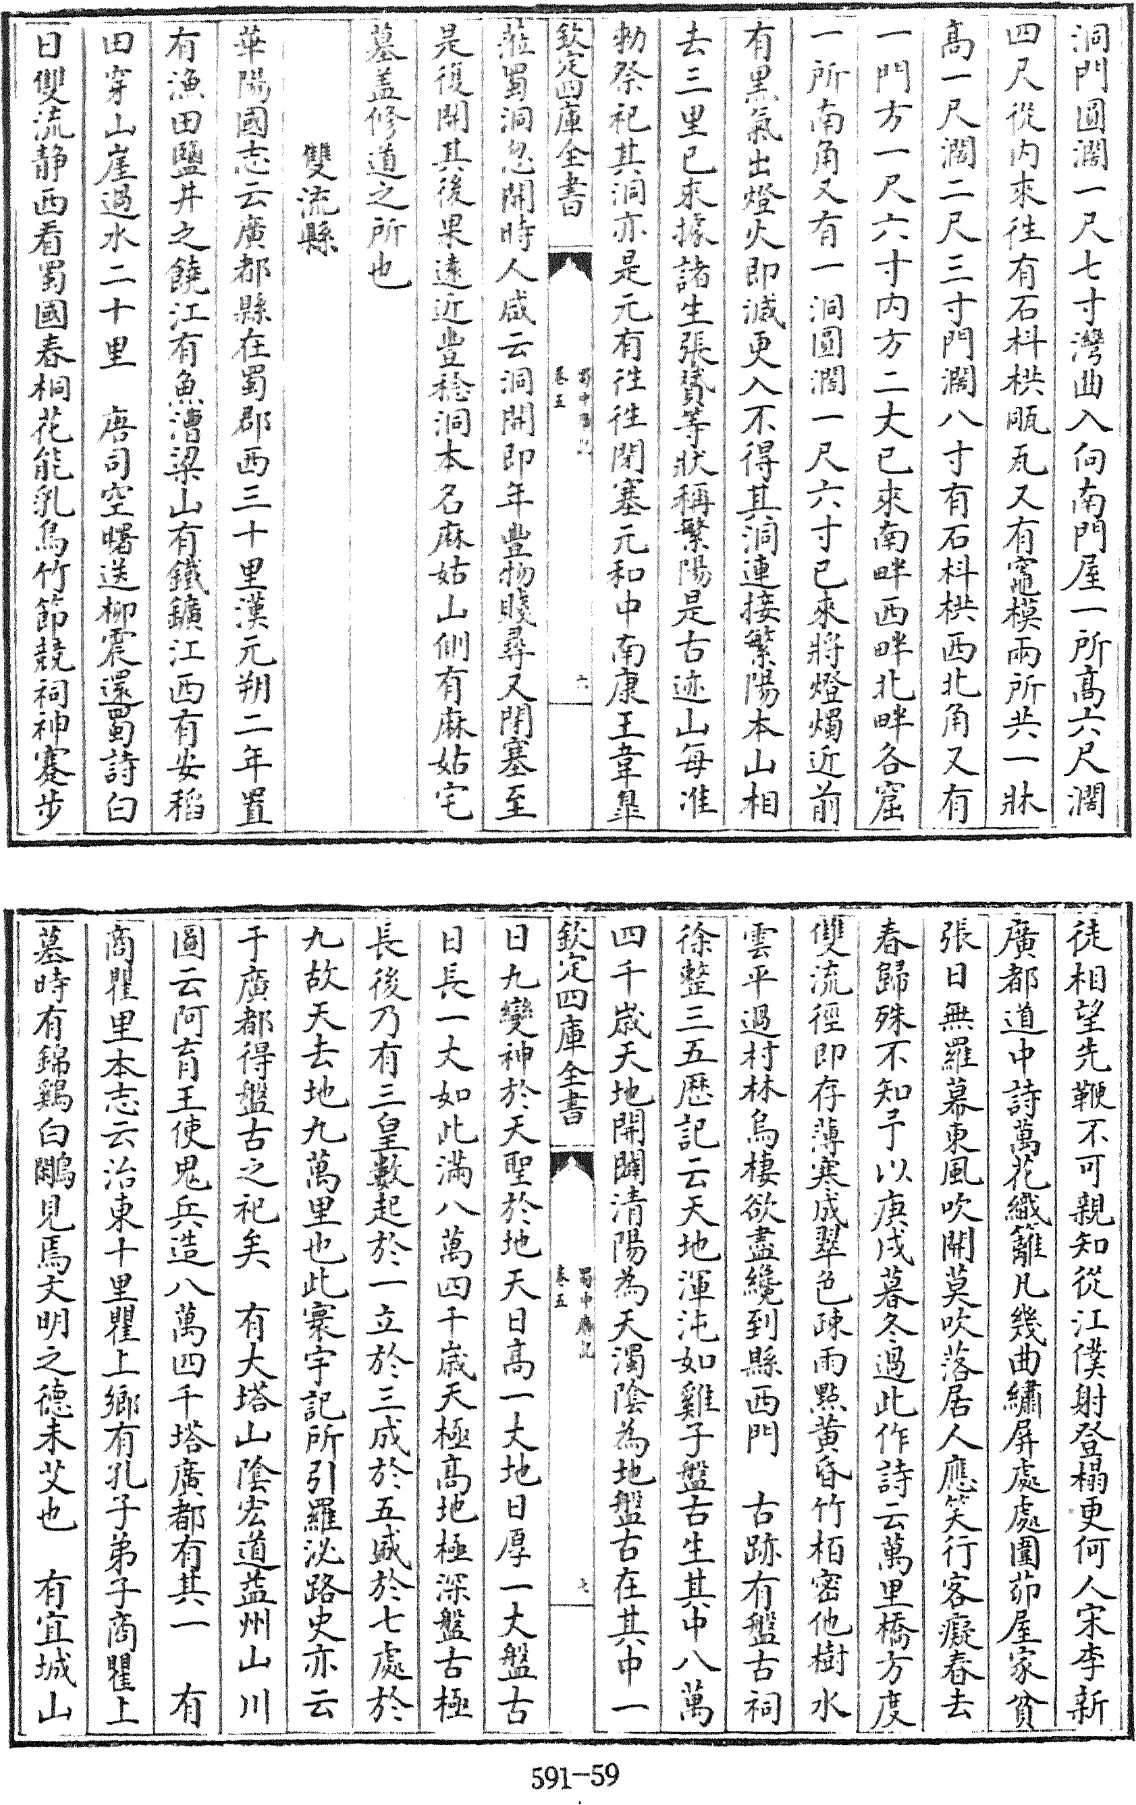 洞門圓濶一尺七寸灣曲入向南門屋一所高六尺濶
四尺從内來徃有石枓栱㼧瓦又有竈模兩所共一牀
高一尺濶二尺三寸門濶八寸有石枓栱西北角又有
一門方一尺六寸内方二丈已來南畔西畔北畔各窟
一所南角又有一洞圓濶一尺六寸已來將燈燭近前
有黑氣出燈火即滅更入不得其洞連接繁陽本山相
去三里已來據諸生張贇等狀稱繁陽是古迹山每准
勅祭祀其洞亦是元有徃徃閉塞元和中南康王韋臯
欽定四庫全書
蜀中廣記
卷五
六
蒞蜀洞忽開時人咸云洞開即年豐物賤尋又閉塞至
是復開其後果遠近豐稔洞本名麻姑山側有麻姑宅
墓盖修道之所也
雙流縣
華陽國志云廣都縣在蜀郡西三十里漢元朔二年置
有漁田鹽井之饒江有魚漕梁山有鐵鑛江西有安稻
田穿山崖過水二十里 唐司空曙送柳震還蜀詩白
日雙流静西看蜀國春桐花能乳鳥竹節競祠神蹇步
徒相望先鞭不可親知從江僕射登榻更何人宋李新
廣都道中詩萬花織籬凡幾曲繡屏處處圍茆屋家貧
張日無羅幕東風吹開莫吹落居人應笑行客癡春去
春歸殊不知予以庚戌暮冬過此作詩云萬里橋方度
雙流徑即存薄寒成翠色疎雨㸃黄昏竹栢密他樹水
雲平過村林烏棲欲盡纔到縣西門 古跡有盤古祠
徐整三五歴記云天地渾沌如雞子盤古生其中八萬
四千歳天地開闢清陽為天濁隂為地盤古在其中一
欽定四庫全書
蜀中廣記
卷五
七
日九變神於天聖於地天日高一丈地日厚一丈盤古
日長一丈如此滿八萬四千歳天極高地極深盤古極
長後乃有三皇數起於一立於三成於五盛於七處於
九故天去地九萬里也此寰宇記所引羅泌路史亦云
于廣都得盤古之祀矣 有大塔山隂宏道益州山川
圖云阿育王使鬼兵造八萬四千塔廣都有其一 有
商瞿里本志云治東十里瞿上鄉有孔子弟子商瞿上
墓時有錦鷄白鷴見焉文明之德未艾也 有宜城山
591-59